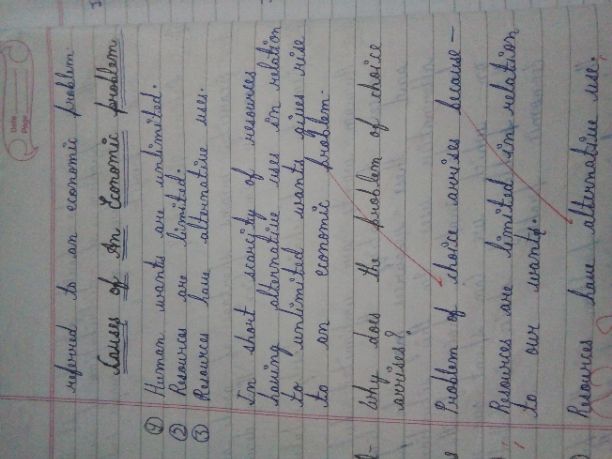 Date
Page
referred to an economic problem.
Causes of An Economic problem
① Human wants are unlimited.
② Resources are limited.
③ Resources have alternative use.
In short scarcity of resources
having alternative uses in relation
to unlimited wants gives rise
to an economic problem.
Why does the problem of choice
arrises?
Problem of choice arrises because -
Resources are limited in relation
to our wants.
Resources have alternative use.